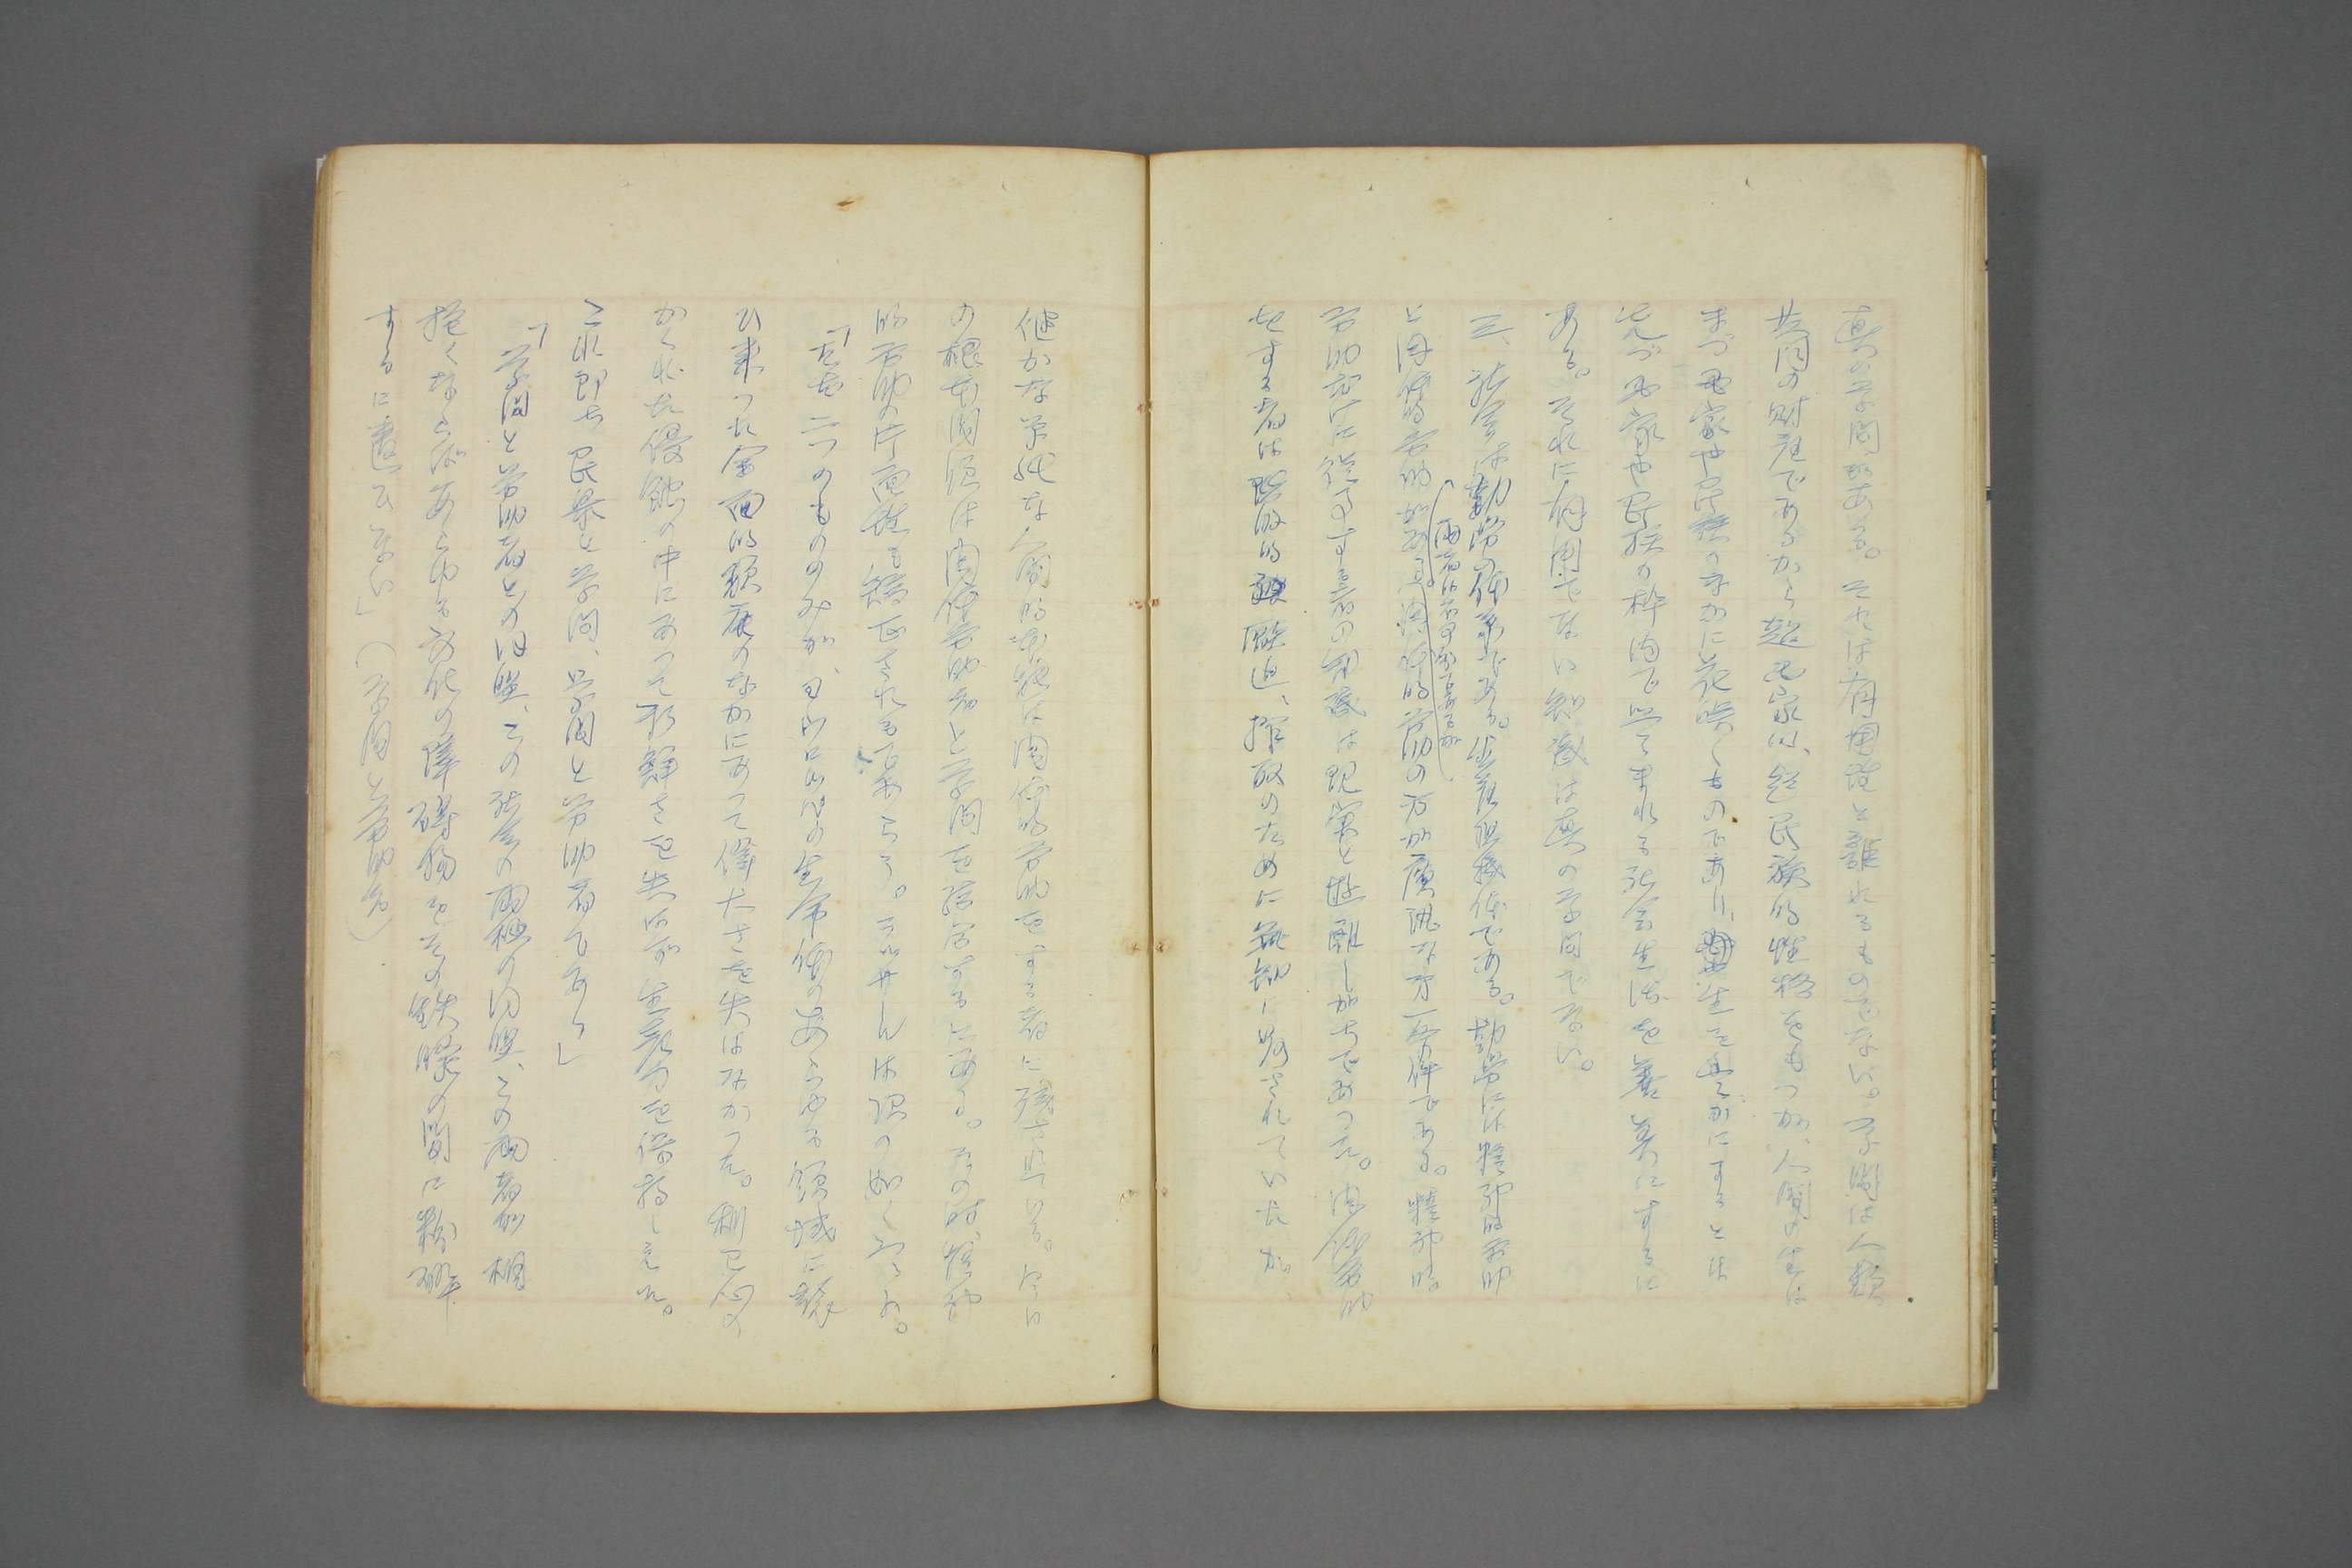 真の学問がある。それは有用性と離れるものでない。学問は人類
共同の財産であるから超国家的、超民族的性格をもつが、人間の生は
まづ国家や民族のなかに花咲くものであり、生をゆたかにするとは
先づ国家や民族の枠内で営まれる社会生活を善美にするに
ある。それに有用でない知識は真の学問でない。
三、社会は勤労体系である。生産組織体である。勤労には精神的労働
と肉体的労働がある。肉体的労働の方が広汎な第一条件である。精神的
労働だけに従事する者の知識は現実と遊離しがちであつた。肉体労働
をする者は政治的圧迫、搾取のために無知に留されていたが、
健かな単純な人間的本能は肉体的労働をする者に残されている。今日
の根本問題は肉体労働者と学問を結合するにある。その時、
的労働の片面性も矯正されるであらう。ラッサールは次の如く云ふ。
「たゞ二つのもののみが、ヨーロッパの全生命体のあらゆる領域に襲
ひ来つた全面的頽廃のなかにあつて偉大さを失はなかつた。利己心の
かくれた侵蝕の中にあつて新鮮さを失はず生産力を保持しえた。
これ即ち民衆と学問、学問と労働者である」
「学問と労働者との同盟、この社会の両極の同盟、この両者が相
抱くならばあらゆる文化の障碍物をその鉄腕の間に粉砕
するに違ひない」(学問と労働者)